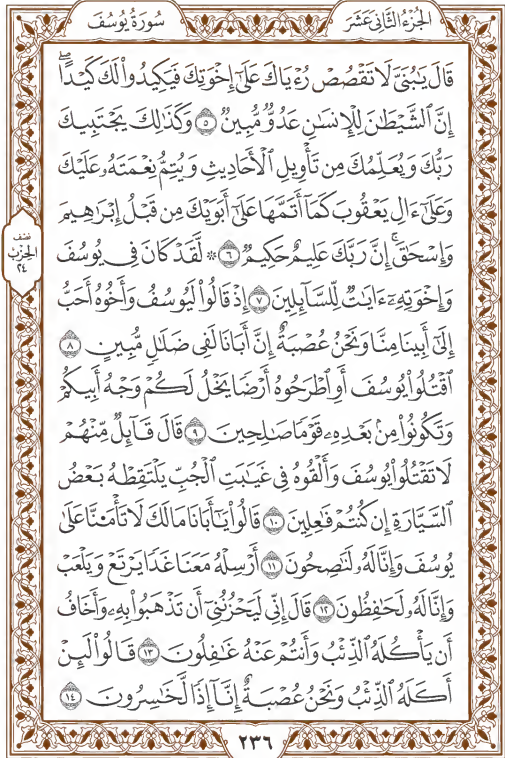 الجُزْءُ الثَّانِي عَشَرَ
سُورَةُ يُوسُفَ
قَالَ يَٰبُنَيَّ لَا تَقْصُصْ رُءْيَاكَ عَلَىٰٓ إِخْوَتِكَ فَيَكِيدُوا۟ لَكَ كَيْدًا ۖ
إِنَّ ٱلشَّيْطَٰنَ لِلْإِنسَٰنِ عَدُوٌّ مُّبِينٌ ٥ وَكَذَٰلِكَ يَجْتَبِيكَ
رَبُّكَ وَيُعَلِّمُكَ مِن تَأْوِيلِ ٱلْأَحَادِيثِ وَيُتِمُّ نِعْمَتَهُۥ عَلَيْكَ
وَعَلَىٰٓ ءَالِ يَعْقُوبَ كَمَآ أَتَمَّهَا عَلَىٰٓ أَبَوَيْكَ مِن قَبْلُ إِبْرَٰهِيمَ
وَإِسْحَٰقَ ۚ إِنَّ رَبَّكَ عَلِيمٌ حَكِيمٌ ٦ ۞ لَّقَدْ كَانَ فِى يُوسُفَ
وَإِخْوَتِهِۦٓ ءَايَٰتٌ لِّلسَّآئِلِينَ ٧ إِذْ قَالُوا۟ لَيُوسُفُ وَأَخُوهُ أَحَبُّ
إِلَىٰٓ أَبِينَا مِنَّا وَنَحْنُ عُصْبَةٌ إِنَّ أَبَانَا لَفِى ضَلَٰلٍ مُّبِينٍ ٨
ٱقْتُلُوا۟ يُوسُفَ أَوِ ٱطْرَحُوهُ أَرْضًا يَخْلُ لَكُمْ وَجْهُ أَبِيكُمْ
وَتَكُونُوا۟ مِنۢ بَعْدِهِۦ قَوْمًا صَٰلِحِينَ ٩ قَالَ قَآئِلٌ مِّنْهُمْ
لَا تَقْتُلُوا۟ يُوسُفَ وَأَلْقُوهُ فِى غَيَٰبَتِ ٱلْجُبِّ يَلْتَقِطْهُ بَعْضُ
ٱلسَّيَّارَةِ إِن كُنتُمْ فَٰعِلِينَ ١٠ قَالُوا۟ يَٰٓأَبَانَا مَالَكَ لَا تَأْمَ۫نَّا عَلَىٰ
يُوسُفَ وَإِنَّا لَهُۥ لَنَٰصِحُونَ ١١ أَرْسِلْهُ مَعَنَا غَدًا يَرْتَعْ وَيَلْعَبْ
وَإِنَّا لَهُۥ لَحَٰفِظُونَ ١٢ قَالَ إِنِّى لَيَحْزُنُنِىٓ أَن تَذْهَبُوا۟ بِهِۦ وَأَخَافُ
أَن يَأْكُلَهُ ٱلذِّئْبُ وَأَنتُمْ عَنْهُ غَٰفِلُونَ ١٣ قَالُوا۟ لَئِنْ
أَكَلَهُ ٱلذِّئْبُ وَنَحْنُ عُصْبَةٌ إِنَّآ إِذًا لَّخَٰسِرُونَ ١٤
نصف
الحزب
٢٤
٢٣٦